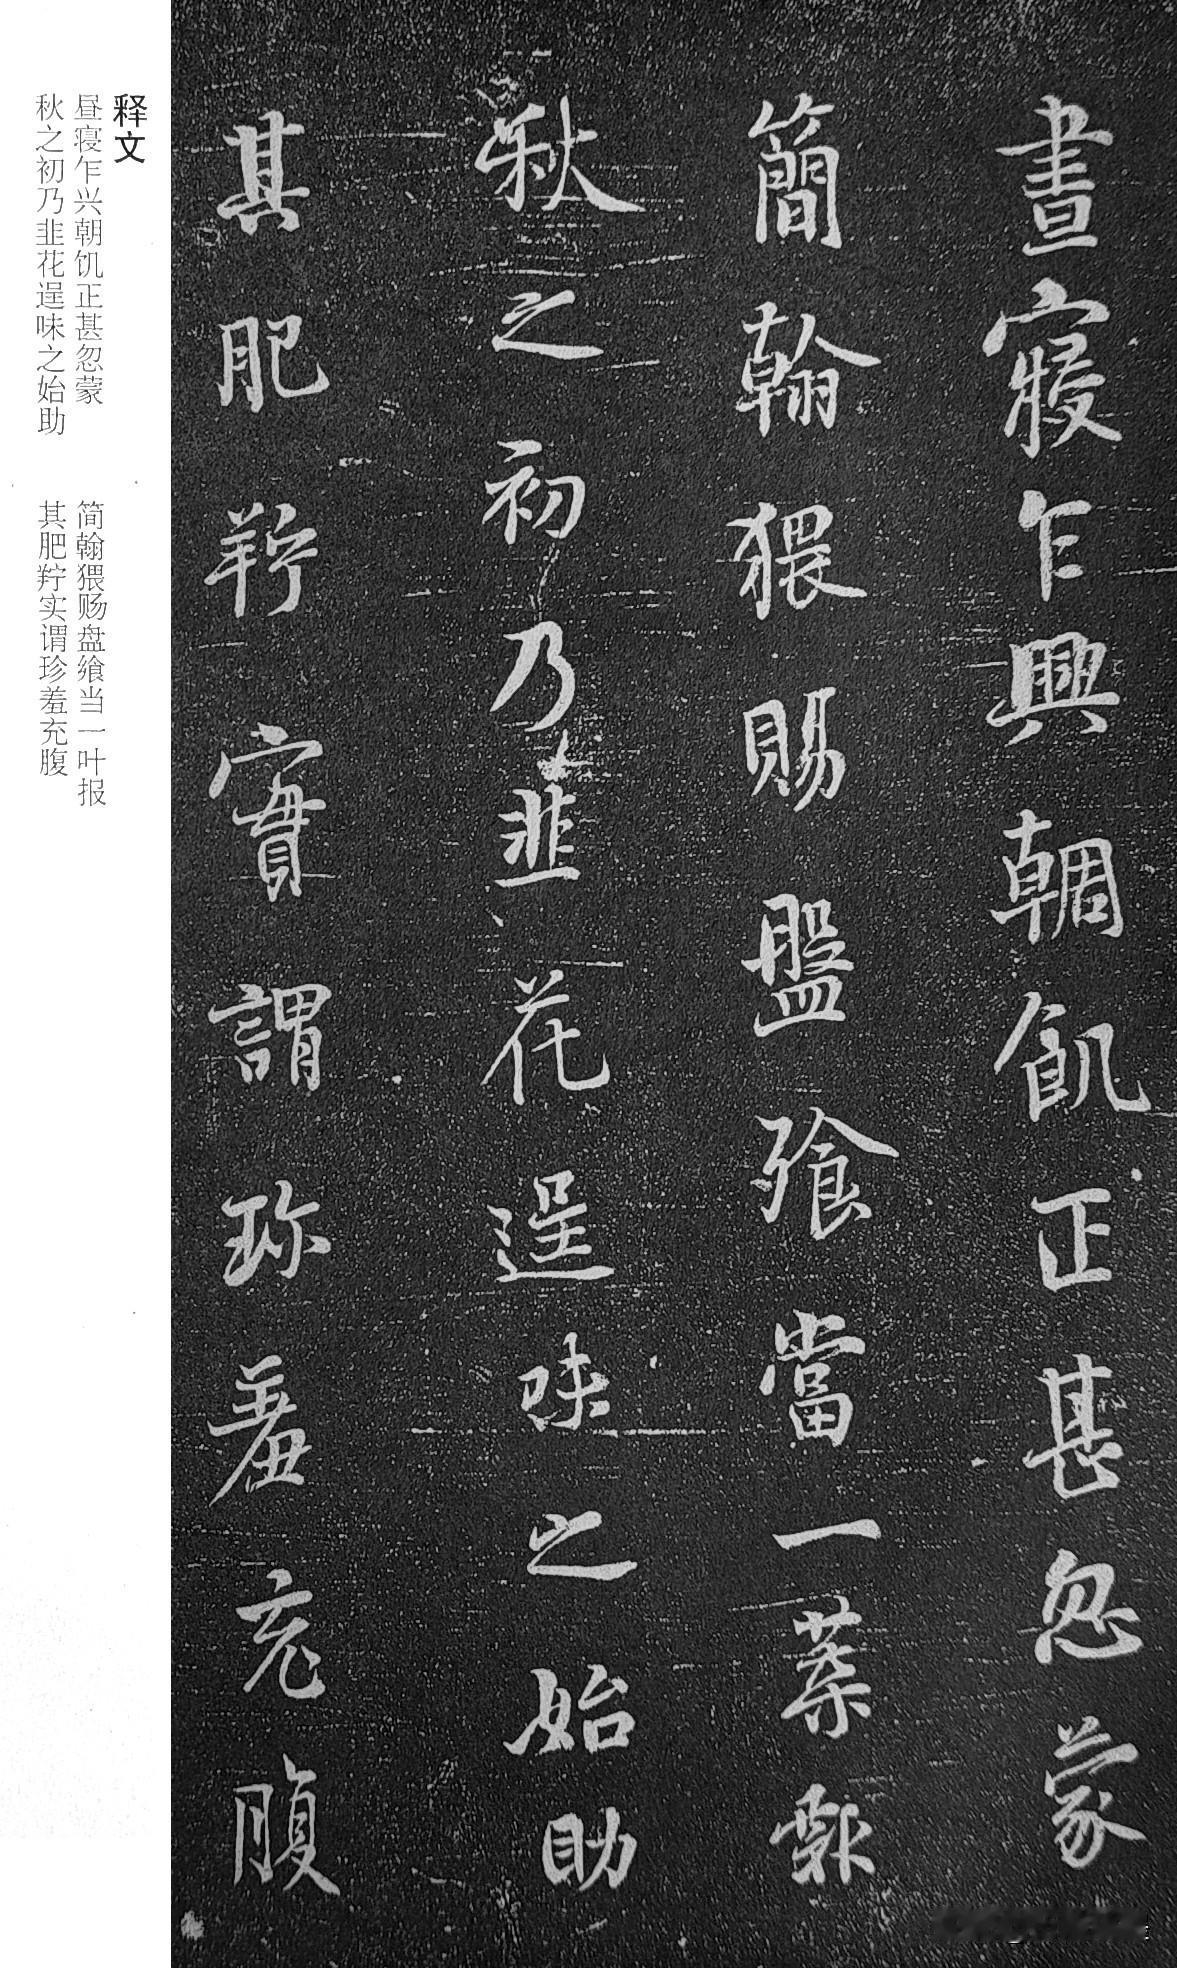 晝寢乍興朝飢正甚忽蒙
簡翰猥賜盤飧當一葉報
秋之初乃韭花逞味之始助
其肥羜實謂珍羞充腹
释文
昼寝乍兴朝饥正甚忽蒙
简翰猥赐盘飨当一叶报
秋之初乃韭花逞味之始助
其肥羜实谓珍羞充腹